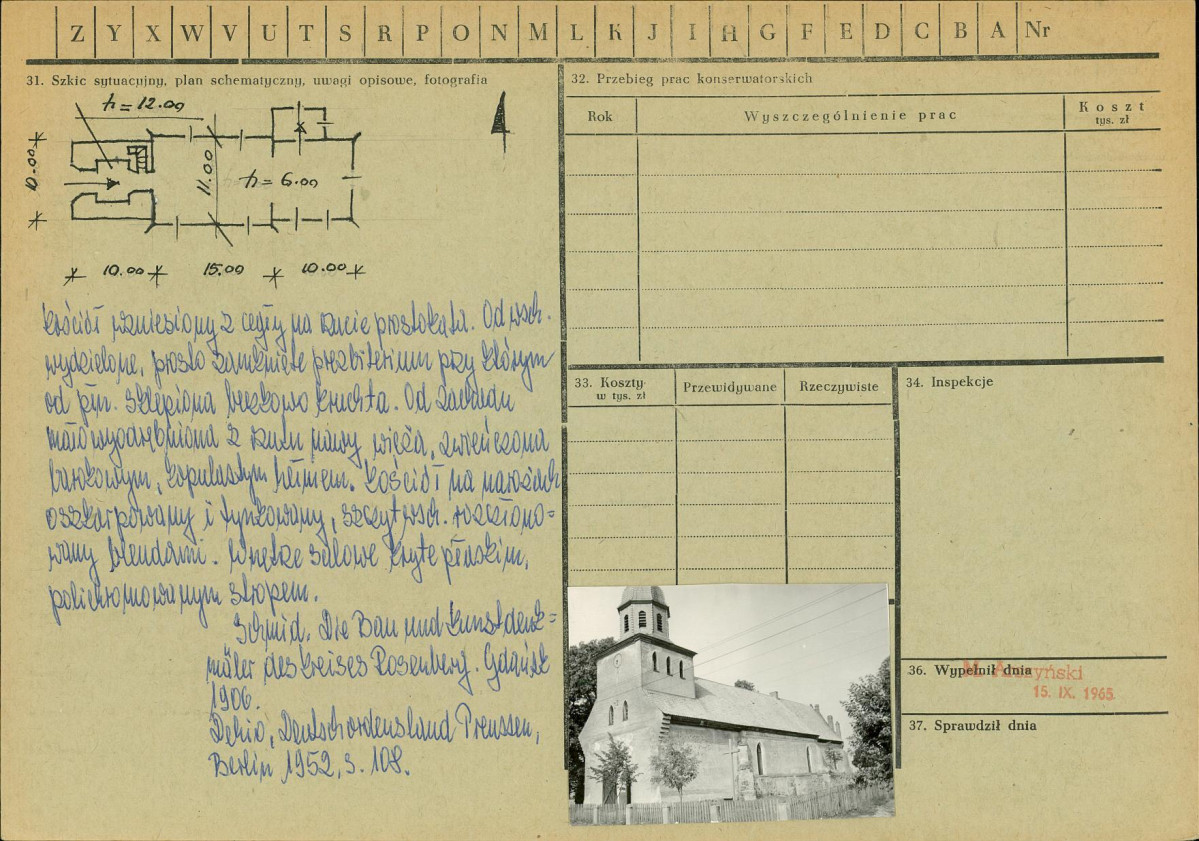 Z Y X W V U T S R P O N M L K J I H G F E D C B A Nr
31. Szkic sytuacyjny, plan schematyczny, uwagi opisowe, fotografia
h = 12.00
10.00
11.00
h = 6.00
10.00 15.00 10.00
Kościół wzniesiony z cegły na rzucie prostokąta. Od wsch.
wydzielone, prosto zamknięte prezbiterium przy którym
od płn. sklepiona beczkowo kruchta. Od zachodu
mało wyodrębniona z rzutu nawy wieża, zwieńczona
barokowym, kopulastym hełmem. Kościół na narożach
oszkarpowany i tynkowany, szczyt wsch. rozczłono=
wany blendami. Wnętrze salowe kryte płaskim,
polichromowanym stropem.
Schmid, Die Bau und Kunstdenk=
mäler des Kreises Rosenberg. Gdańsk
1906.
Dehio, Deutschordensland Preussen,
Berlin 1952, s. 108.
32. Przebieg prac konserwatorskich
Rok Wyszczególnienie prac Koszt
tys. zł
33. Koszty
w tys. zł
Przewidywane Rzeczywiste
34. Inspekcje
36. Wypełnił dnia
15. IX. 1965
37. Sprawdził dnia